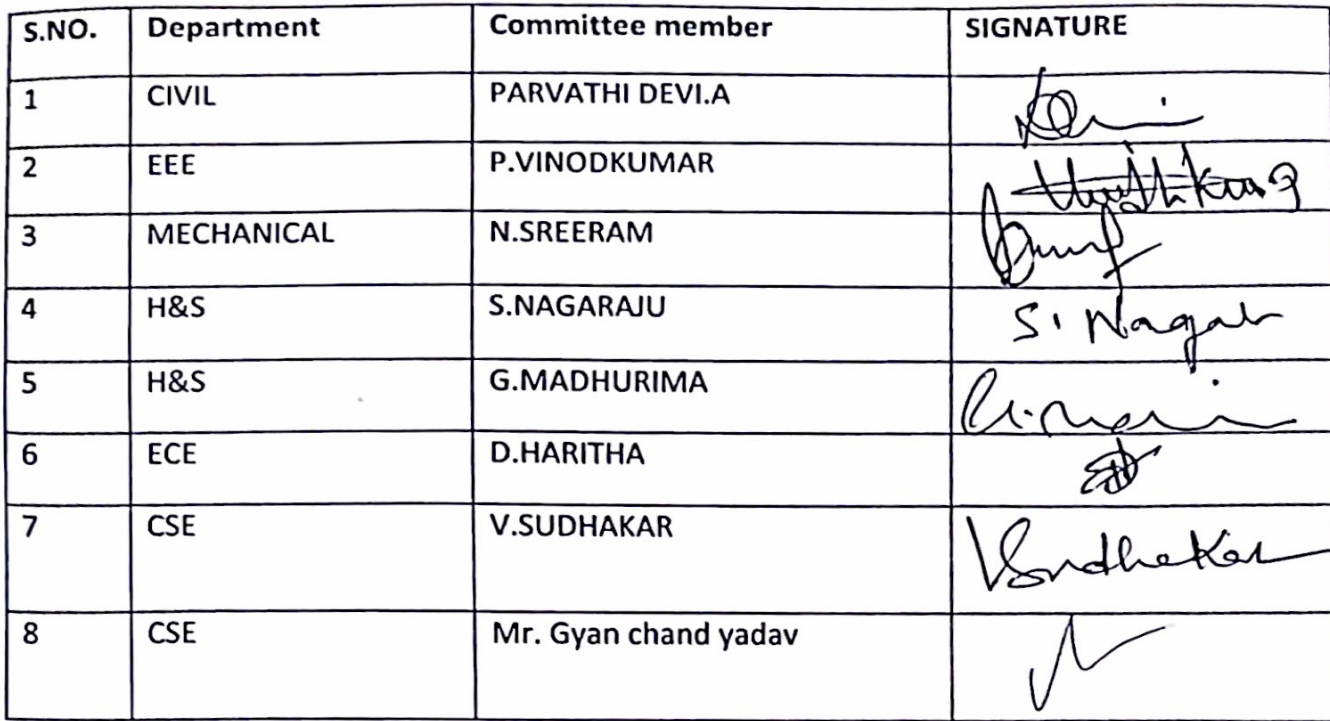 S.NO. Department Committee member SIGNATURE
1 CIVIL PARVATHI DEVI.A
2 EEE P.VINODKUMAR
3 MECHANICAL N.SREERAM
4 H&S S.NAGARAJU S. Nagar
5 H&S G.MADHURIMA
6 ECE D.HARITHA
7 CSE V.SUDHAKAR VSudhakar
8 CSE Mr. Gyan chand yadav